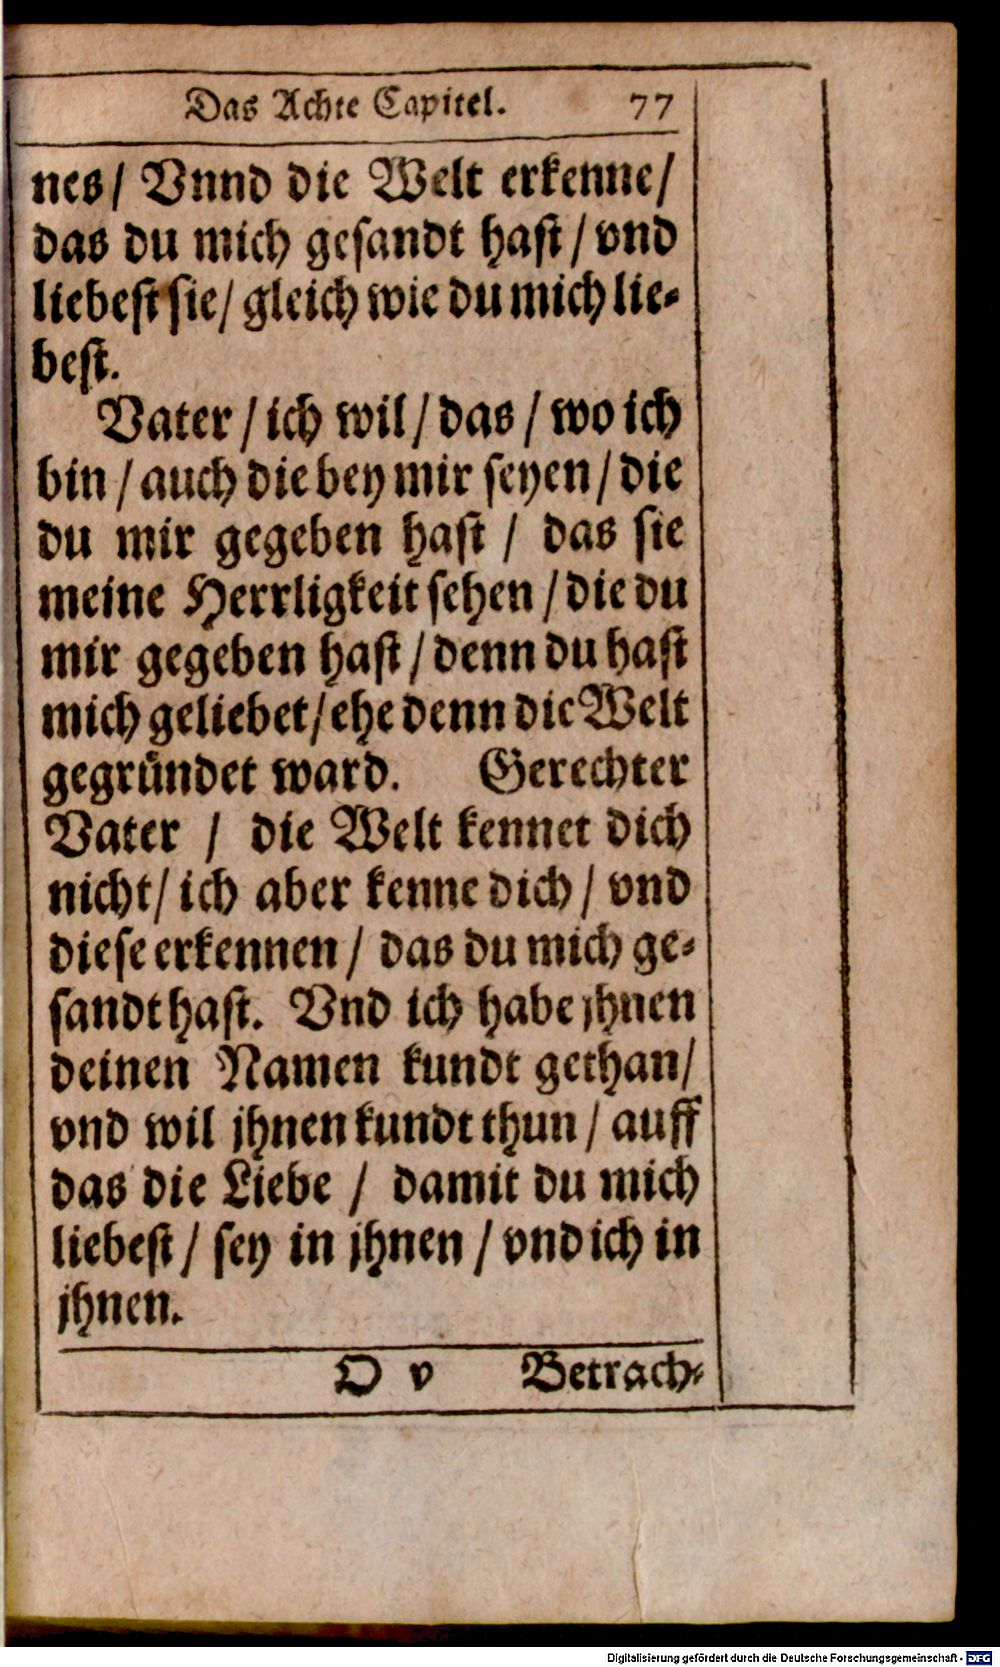 Das Achte Capitel. 77
nes/ Vnnd die Welt erkenne/
das du mich gesandt hast/ vnd
liebest sie/ gleich wie du mich lie-
best.
Vater/ ich wil/ das/ wo ich
bin/ auch die bey mir seyen/ die
du mir gegeben hast/ das sie
meine Herrligkeit sehen/ die du
mir gegeben hast/ denn du hast
mich geliebet/ ehe denn die Welt
gegründet ward. Gerechter
Vater/ die Welt kennet dich
nicht/ ich aber kenne dich/ vnd
diese erkennen/ das du mich ge-
sandt hast. Vnd ich habe jhnen
deinen Namen kundt gethan/
vnd wil jhnen kundt thun/ auff
das die Liebe/ damit du mich
liebest/ sey in jhnen/ vnd ich in
jhnen.
D v Betrach-
Digitalisierung gefördert durch die Deutsche Forschungsgemeinschaft - DFG